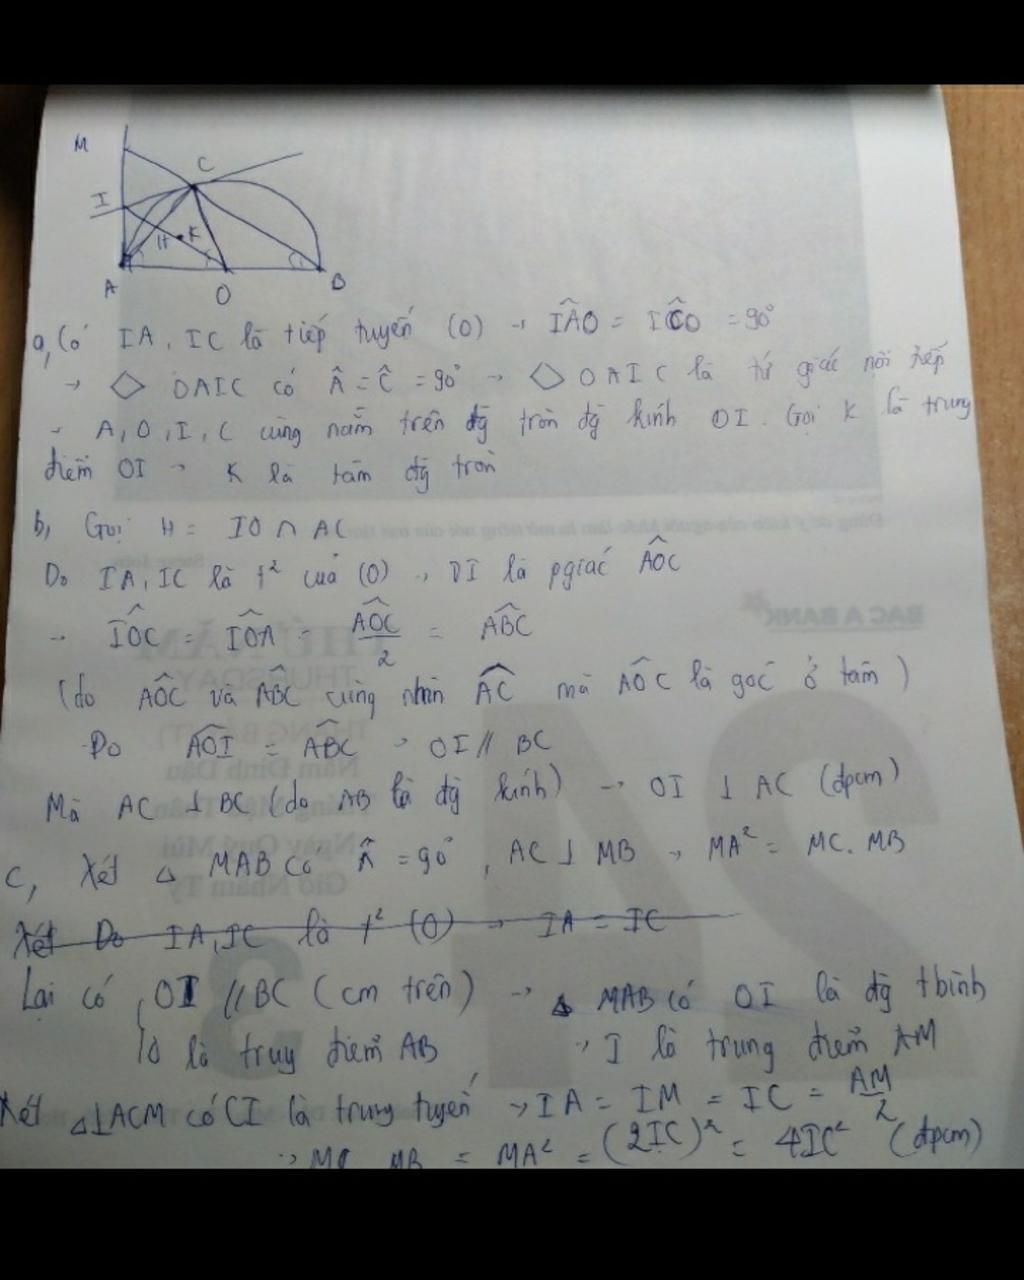 M
C
I
H K
A
O
B
a, Có IA, IC là tiếp tuyến (O) → IÂO = IĈO = 90°
→ ◇ OAIC có Â = Ĉ = 90° → ◇ OAIC là tứ giác nội tiếp
→ A, O, I, C cùng nằm trên đg tròn đg kính OI. Gọi K là trung
điểm OI → K là tâm đg tròn
b, Gọi H = IO ∩ AC
Do IA, IC là t² của (O) → OI là pgiác AÔC
→ IÔC = IÔA = AÔC/2 = ABC
(do AÔC và ABC cùng nhìn AC mà AÔC là góc ở tâm)
Do AOI = ABC → OI // BC
Mà AC ⊥ BC (do AB là đg kính) → OI ⊥ AC (đpcm)
c, Xét △ MAB có Â = 90°, AC ⊥ MB → MA² = MC. MB
Xét Do IA, IC là t² (O) → IA = IC
Lại có { OI // BC (cm trên) → △ MAB có OI là đg tbình
O là truy điểm AB → I là trung điểm AM
Xét △ ACM có CI là trung tuyến → IA = IM = IC = AM/2
→ MC. MB = MA² = (2IC)² = 4IC² (đpcm)
BAC A BANK
THURSDAY
24
3